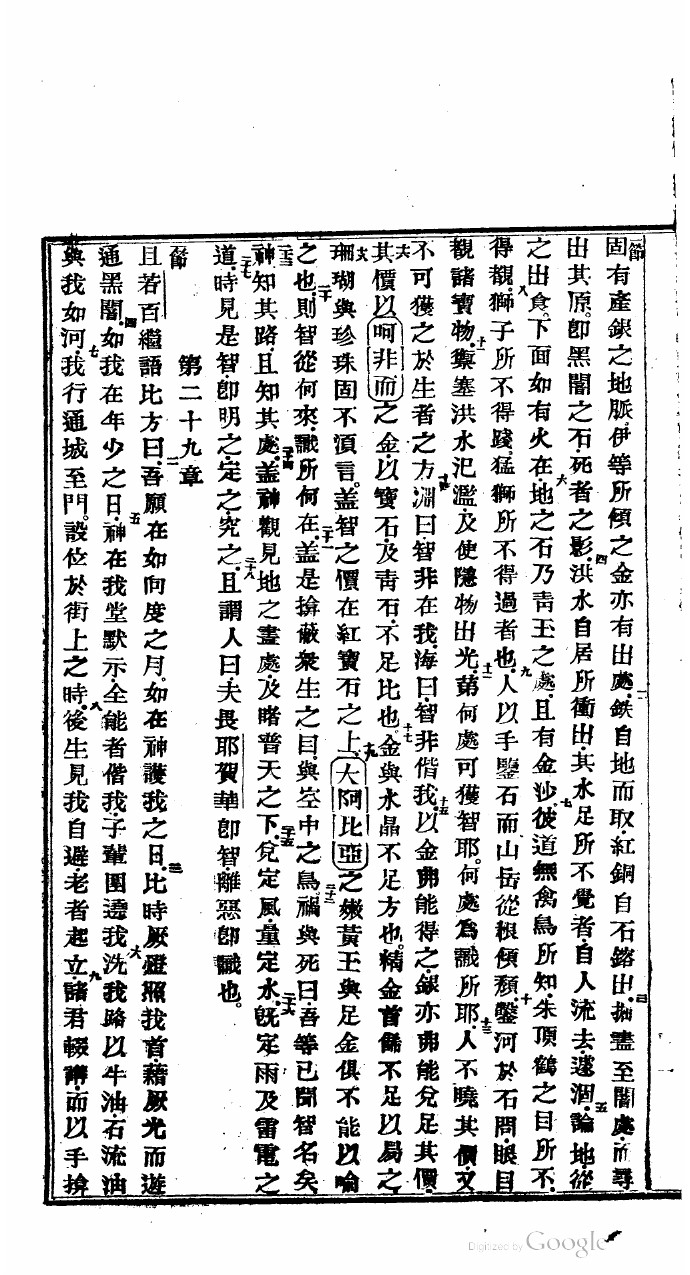 節固有產銀之地脈伊等所傾之金亦有出處二鉄自地而取紅銅自石鎔出三抛盡至闇處而尋
出其原卽黑闇之石死者之影四洪水自居所衝出其水足所不覺者自人流去遂涸五論地從
之出食下面如有火在六地之石乃靑玉之處且有金沙七彼道無禽鳥所知朱頂鶴之目所不
得覩八獅子所不得踐猛獅所不得過者也九人以手鑒石而山岳從根傾頹十鑿河於石間眼目
覩諸寶物十一禦塞洪水氾濫及使隱物出光十二第何處可獲智耶何處爲識所耶十三人不曉其價又
不可獲之於生者之方十四淵曰智非在我海曰智非偕我十五以金弗能得之銀亦弗能兌足其價
十六其價以呵非而之金以寶石及靑石不足比也十七金與水晶不足方也精金首飾不足以易之
十八珊瑚與珍珠固不須言蓋智之價在紅寶石之上十九大阿比亞之嫩黃玉與足金俱不能以喻
之也二十則智從何來識所何在二十一蓋是揜蔽衆生之目與空中之鳥二十二禍與死曰吾等已聞智名矣
二十三神知其路且知其處二十四蓋神觀見地之盡處及睹普天之下二十五兌定風量定水二十六旣定雨及雷電之
道二十七時見是智卽明之定之究之二十八且謂人曰夫畏耶賀華卽智離惡卽識也
第二十九章
節且若百繼語比方曰二吾願在如向度之月如在神護我之日三比時厥燈照我首藉厥光而遊
通黑闇四如我在年少之日神在我堂默示五全能者偕我子輩圍遶我六洗我路以牛油石流油
與我如河七我行通城至門設位於街上之時八後生見我自避老者起立九諸君輟講而以手揜
Digitized by Google